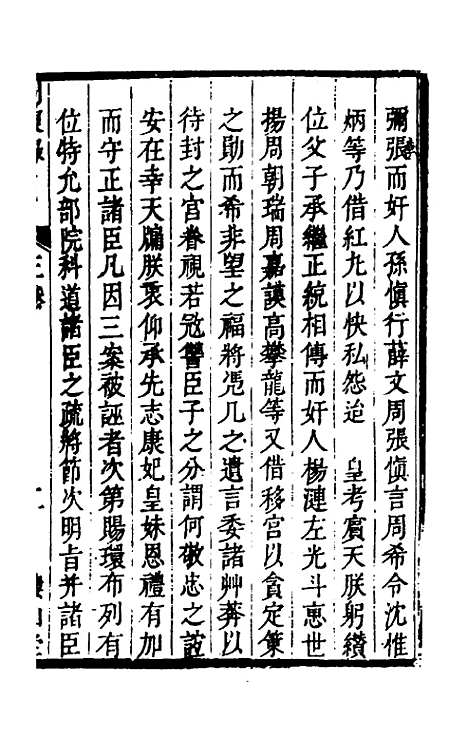 彌張而奸人孫愼行薛文周張愼言周希令沈惟
炳等乃借紅丸以快私怨迨　皇考賓天朕躬纘
位父子承繼正統相傳而奸人楊漣左光斗惠世
揚周朝瑞周嘉謨高攀龍等又借移宮以貪定策
之勛而希非望之福將凴几之遺言委諸艸莽以
待封之宮眷視若寇讐臣子之分謂何敬忠之誼
安在幸天牖朕衷仰承先志康妃皇妹恩禮有加
而守正諸臣凡因三案被誣者次第賜環布列有
位特允部院科道諸臣之疏將節次明旨并諸臣